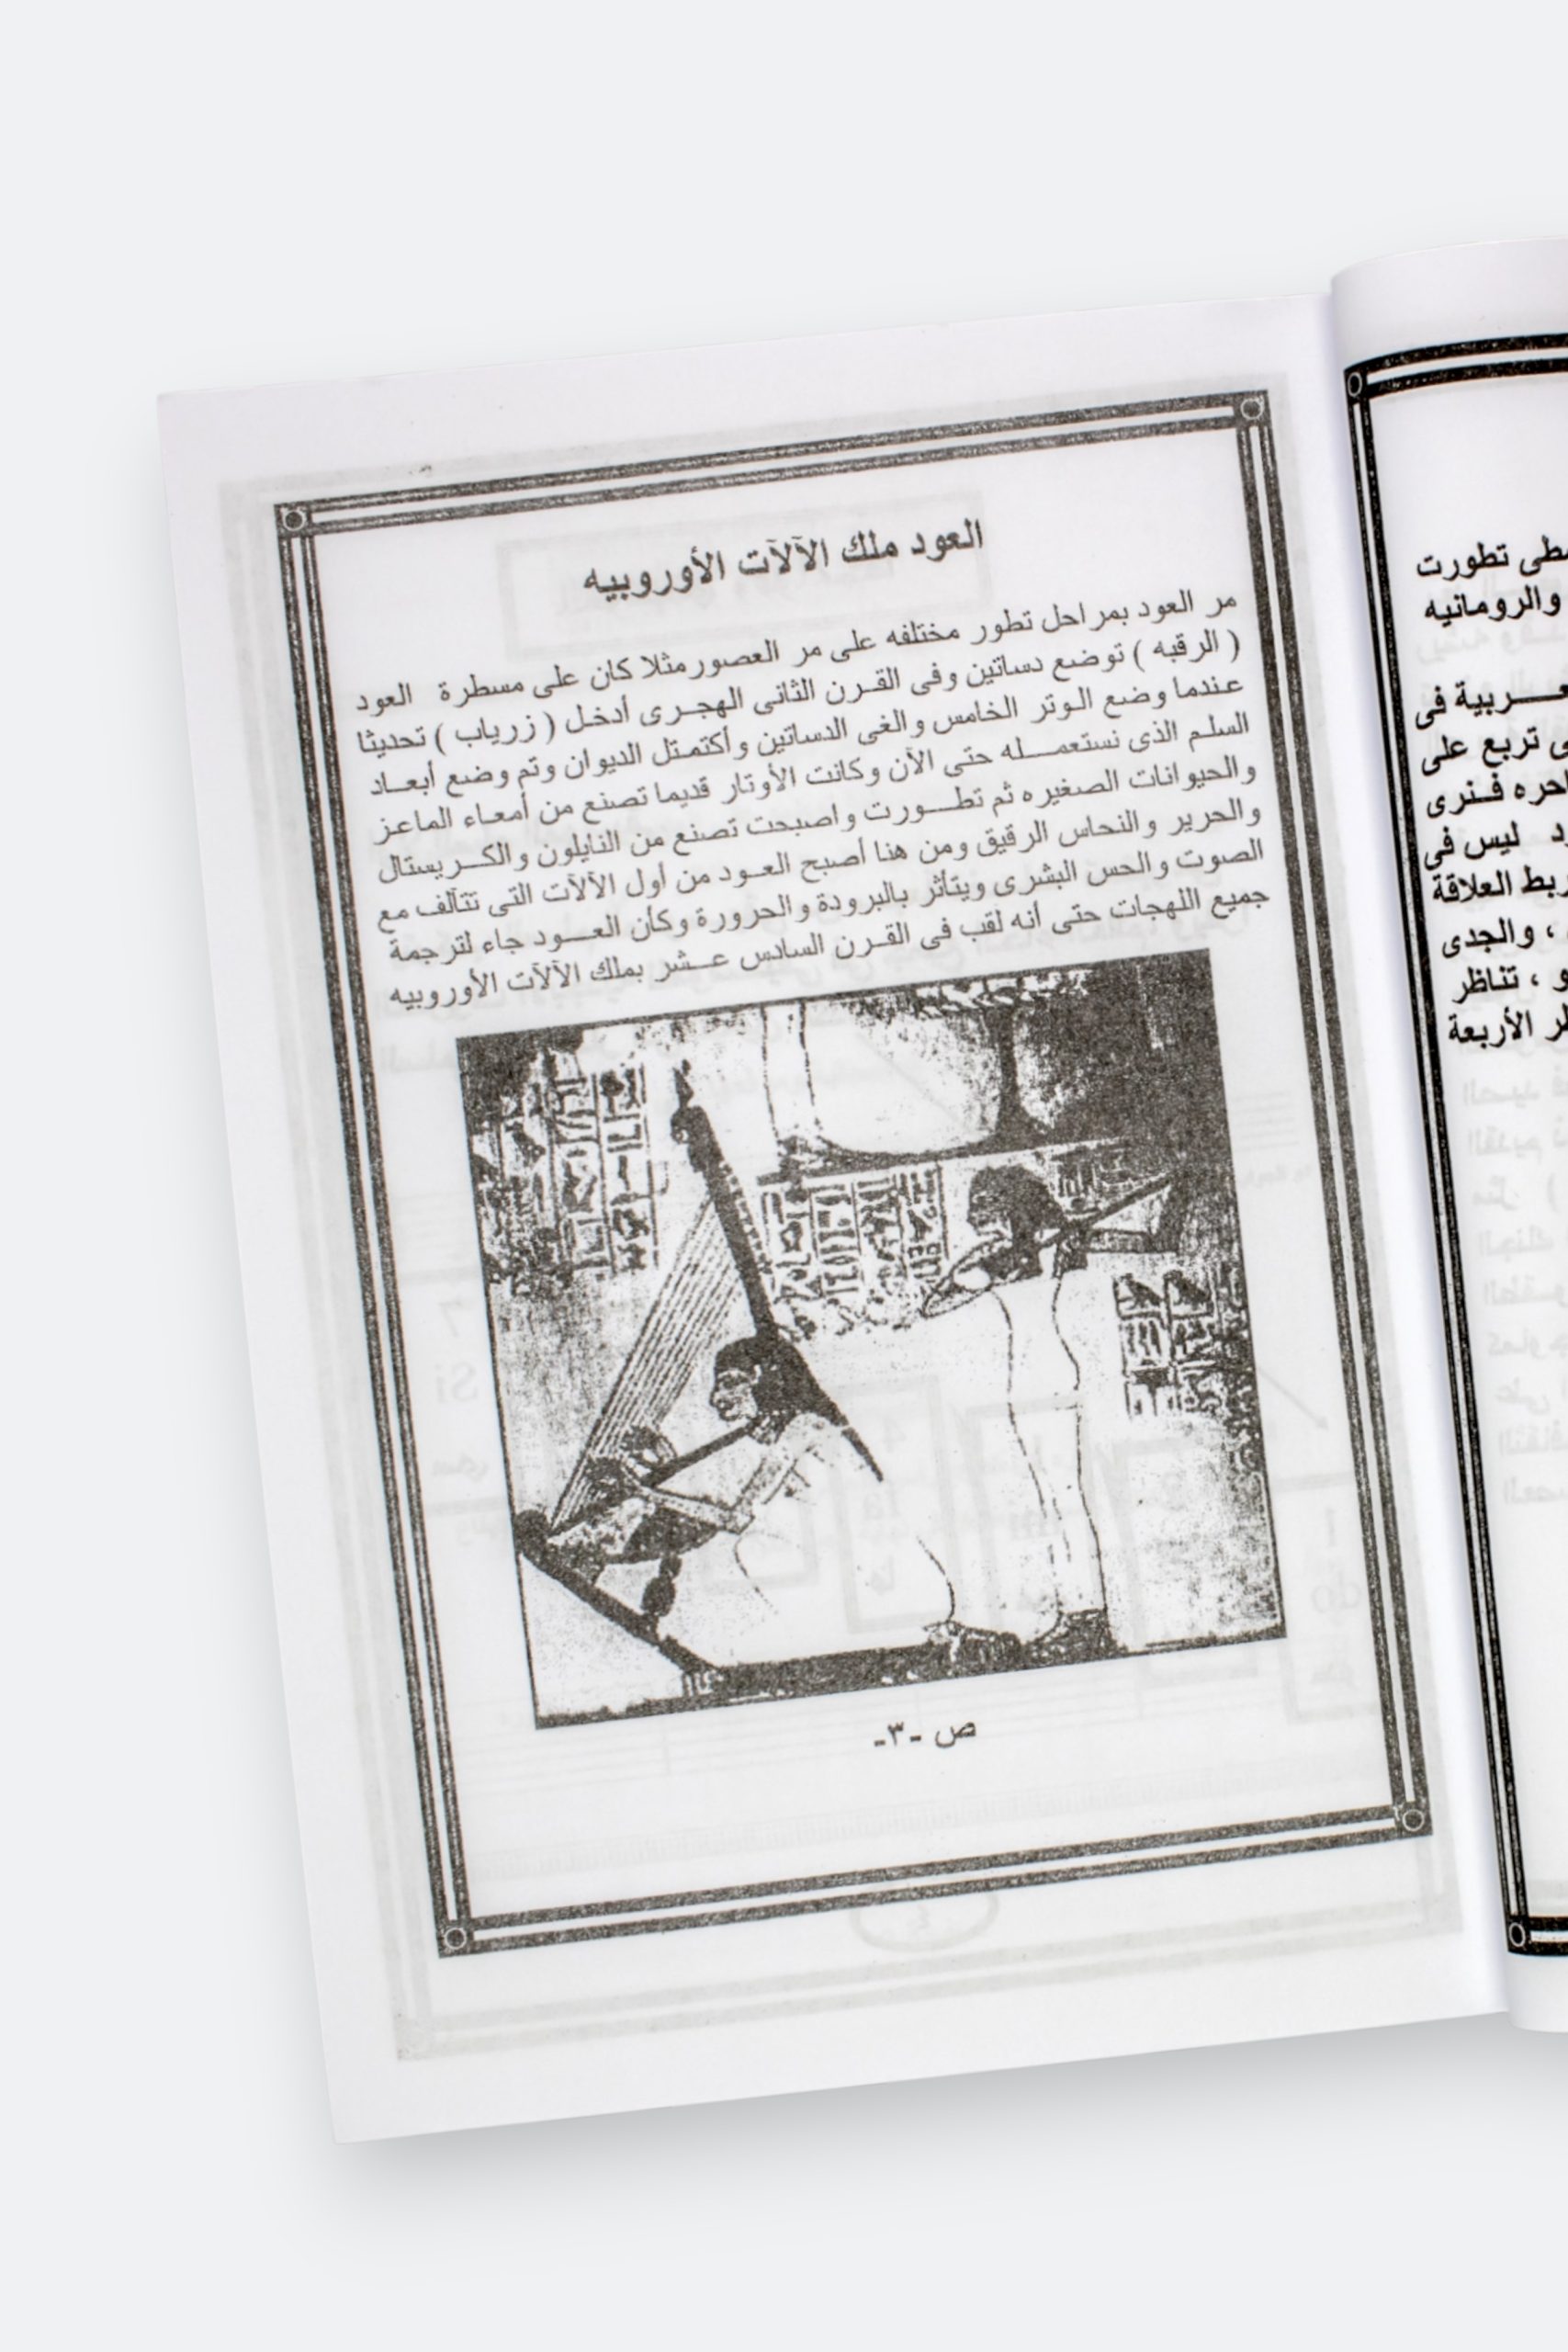 العود ملك الآلآت الأوروبيه
مر العود بمراحل تطور مختلفه على مر العصور مثلا كان على مسطرة العود
( الرقبه ) توضع دساتين وفى القرن الثانى الهجرى أدخل ( زرياب ) تحديثا
عندما وضع الوتر الخامس والغى الدساتين وأكتمتل الديوان وتم وضع أبعاد
السلم الذى نستعمله حتى الآن وكانت الأوتار قديما تصنع من أمعاء الماعز
والحيوانات الصغيره ثم تطورت واصبحت تصنع من النايلون والكريستال
والحرير والنحاس الرقيق ومن هنا أصبح العود من أول الآلآت التى تتآلف مع
الصوت والحس البشرى ويتأثر بالبرودة والحرورة وكأن العود جاء لترجمة
جميع اللهجات حتى أنه لقب فى القرن السادس عشر بملك الآلآت الأوروبيه
ص -٣-
تطورت
والرومانيه
فى
تربع على
فنرى
ليس فى
العلاقة
، والجدى
، تناظر
الأربعة